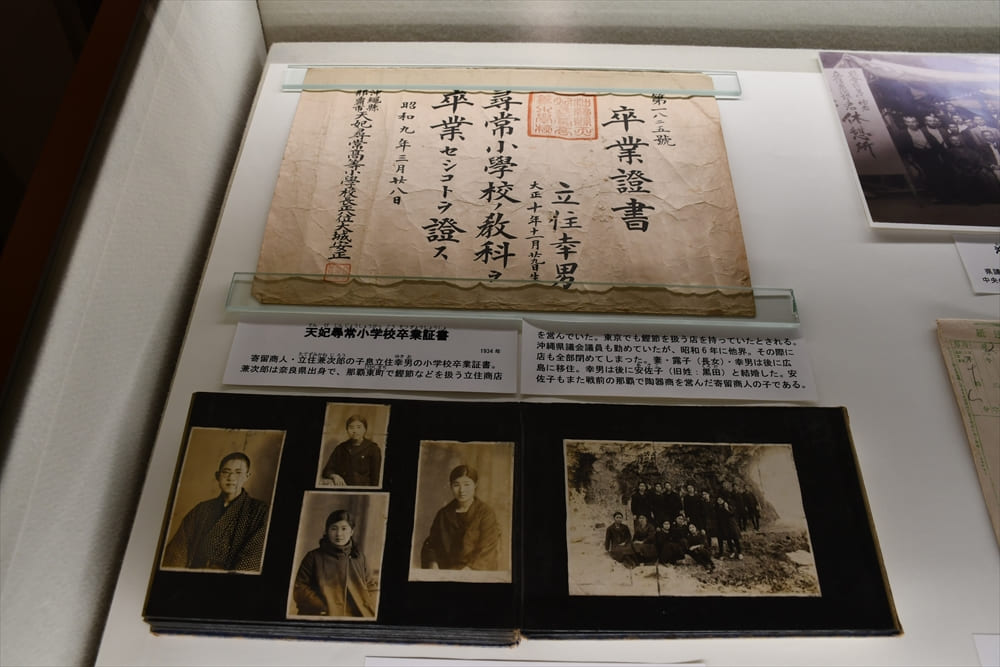 第一八二五號
卒業證書
立住幸男
大正十年十一月廿九日生
尋常小學校ノ教科ヲ
卒業セシコトヲ證ス
昭和九年三月廿八日
沖繩縣
那覇市天妃尋常高等小學校長
天妃尋常小学校卒業証書
1934年
寄留商人・立住兼次郎の子息立住幸男の小学校卒業証書。
兼次郎は奈良県出身で、那覇東町で鰹節などを扱う立住商店
を営んでいた。東京でも鰹節を扱う店を持っていたとされる。
沖縄県議会議員も勤めていたが、昭和6年に他界。その際に
店も全部閉めてしまった。妻・露子（長女）・幸男は後に広
島に移住。幸男は後に安佐子（旧姓：黒田）と結婚した。安
佐子もまた戦前の那覇で陶器商を営んだ寄留商人の子である。
休憩所
県議
中央